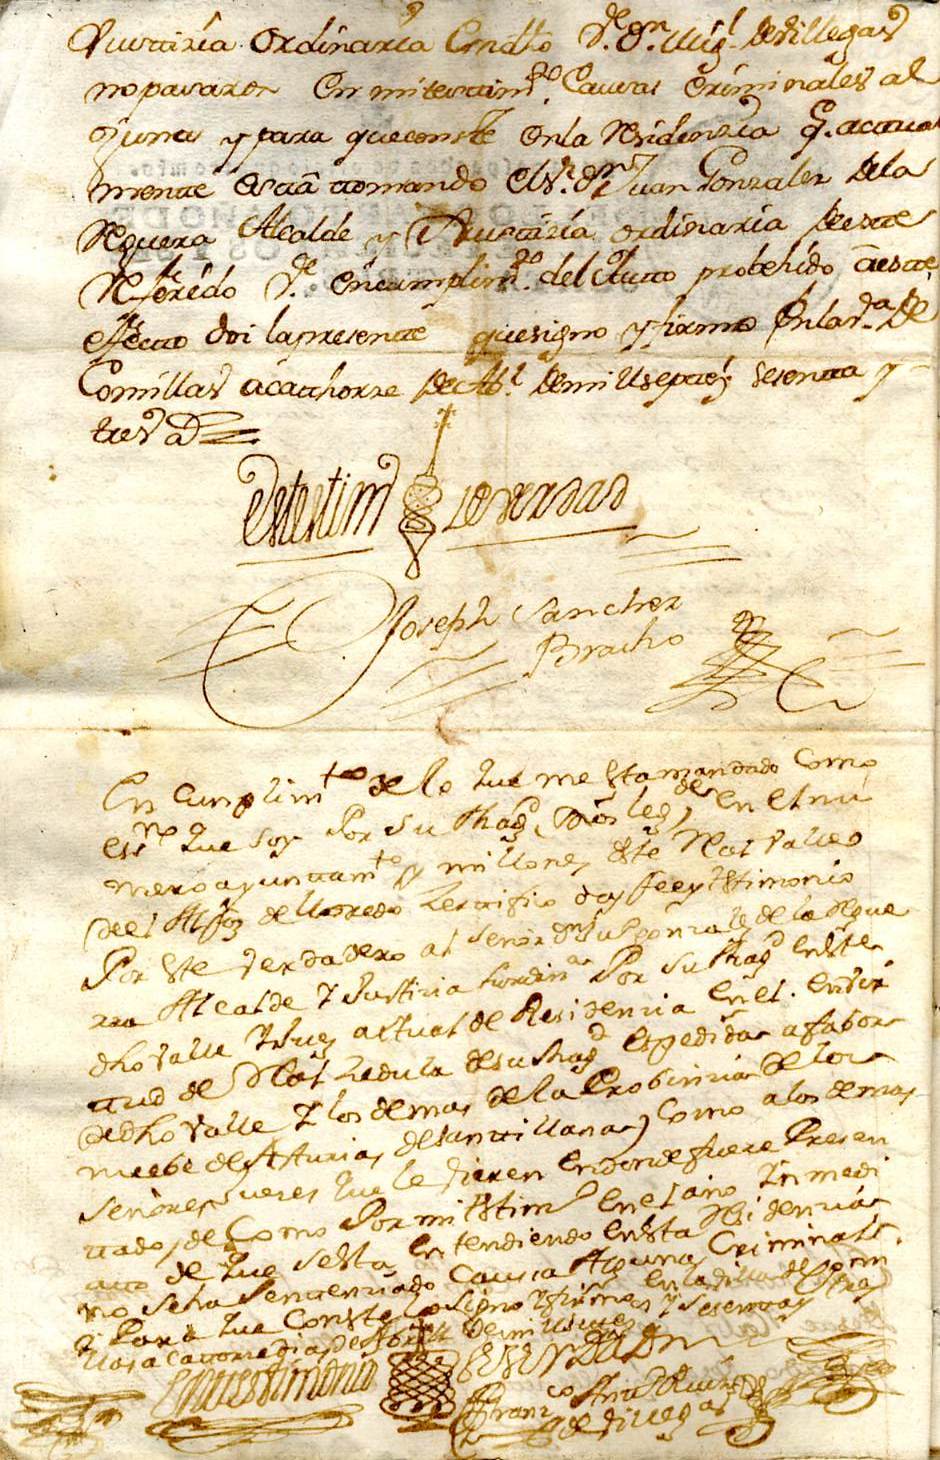 Justizia Ordinaria en dho Rl. Dn. Mig.l de Villegas
no pasaron en mi testim.o Causas Criminales al
guna y para que conste en la Residenzia q.e actual
mente está tomando el Sr. Dn. Juan Gonzalez de la
Reguera Alcalde y Justizia ordinaria de este
Referido Rl. en cumplim.to del Auto probehido a este
efecto doi la presente que signo y firmo en la v.a de
Comillas a cathorze de Ab.l de mil setez.s sesenta y
tres a.s
En testim.o de verdad
Joseph Sanchez
Bracho
En Cunplim.to de lo que me esta mandado Como
ess.no que soy Por Su Mag.d (Dios le g.de) en el nu
mero ayuntam.to y millones deste Real Valle
de el Alfoz de lloredo Zertifico doy fee y testimonio
Por este verdadero al señor Dn. Juan gonzalez de la Regue
ra Alcalde y Justizia hordin.a Por su Mag.d en este
dho valle y Juez actual de Residenzia en el. en vir
tud de Real Zedula de su Mag.d espedida a fabor
de dho valle y los demas de la Probinzia de los
nuebe de Asturias de santillana, Como a los demas
señores Juezes que le vieren en donde fuere Presen
tado, de Como Por mi testim.o en el año inmedi
ato de que se esta entendiendo en esta Residenzia
no se ha sentenziado Causa Alguna Criminal.
y Para que Conste lo signo y firmo en
a catorze dias de Abril de mil setez.s y sesenta y tres
En testimonio de verdad
Franz.co Ant.o Ruiz
de villegas